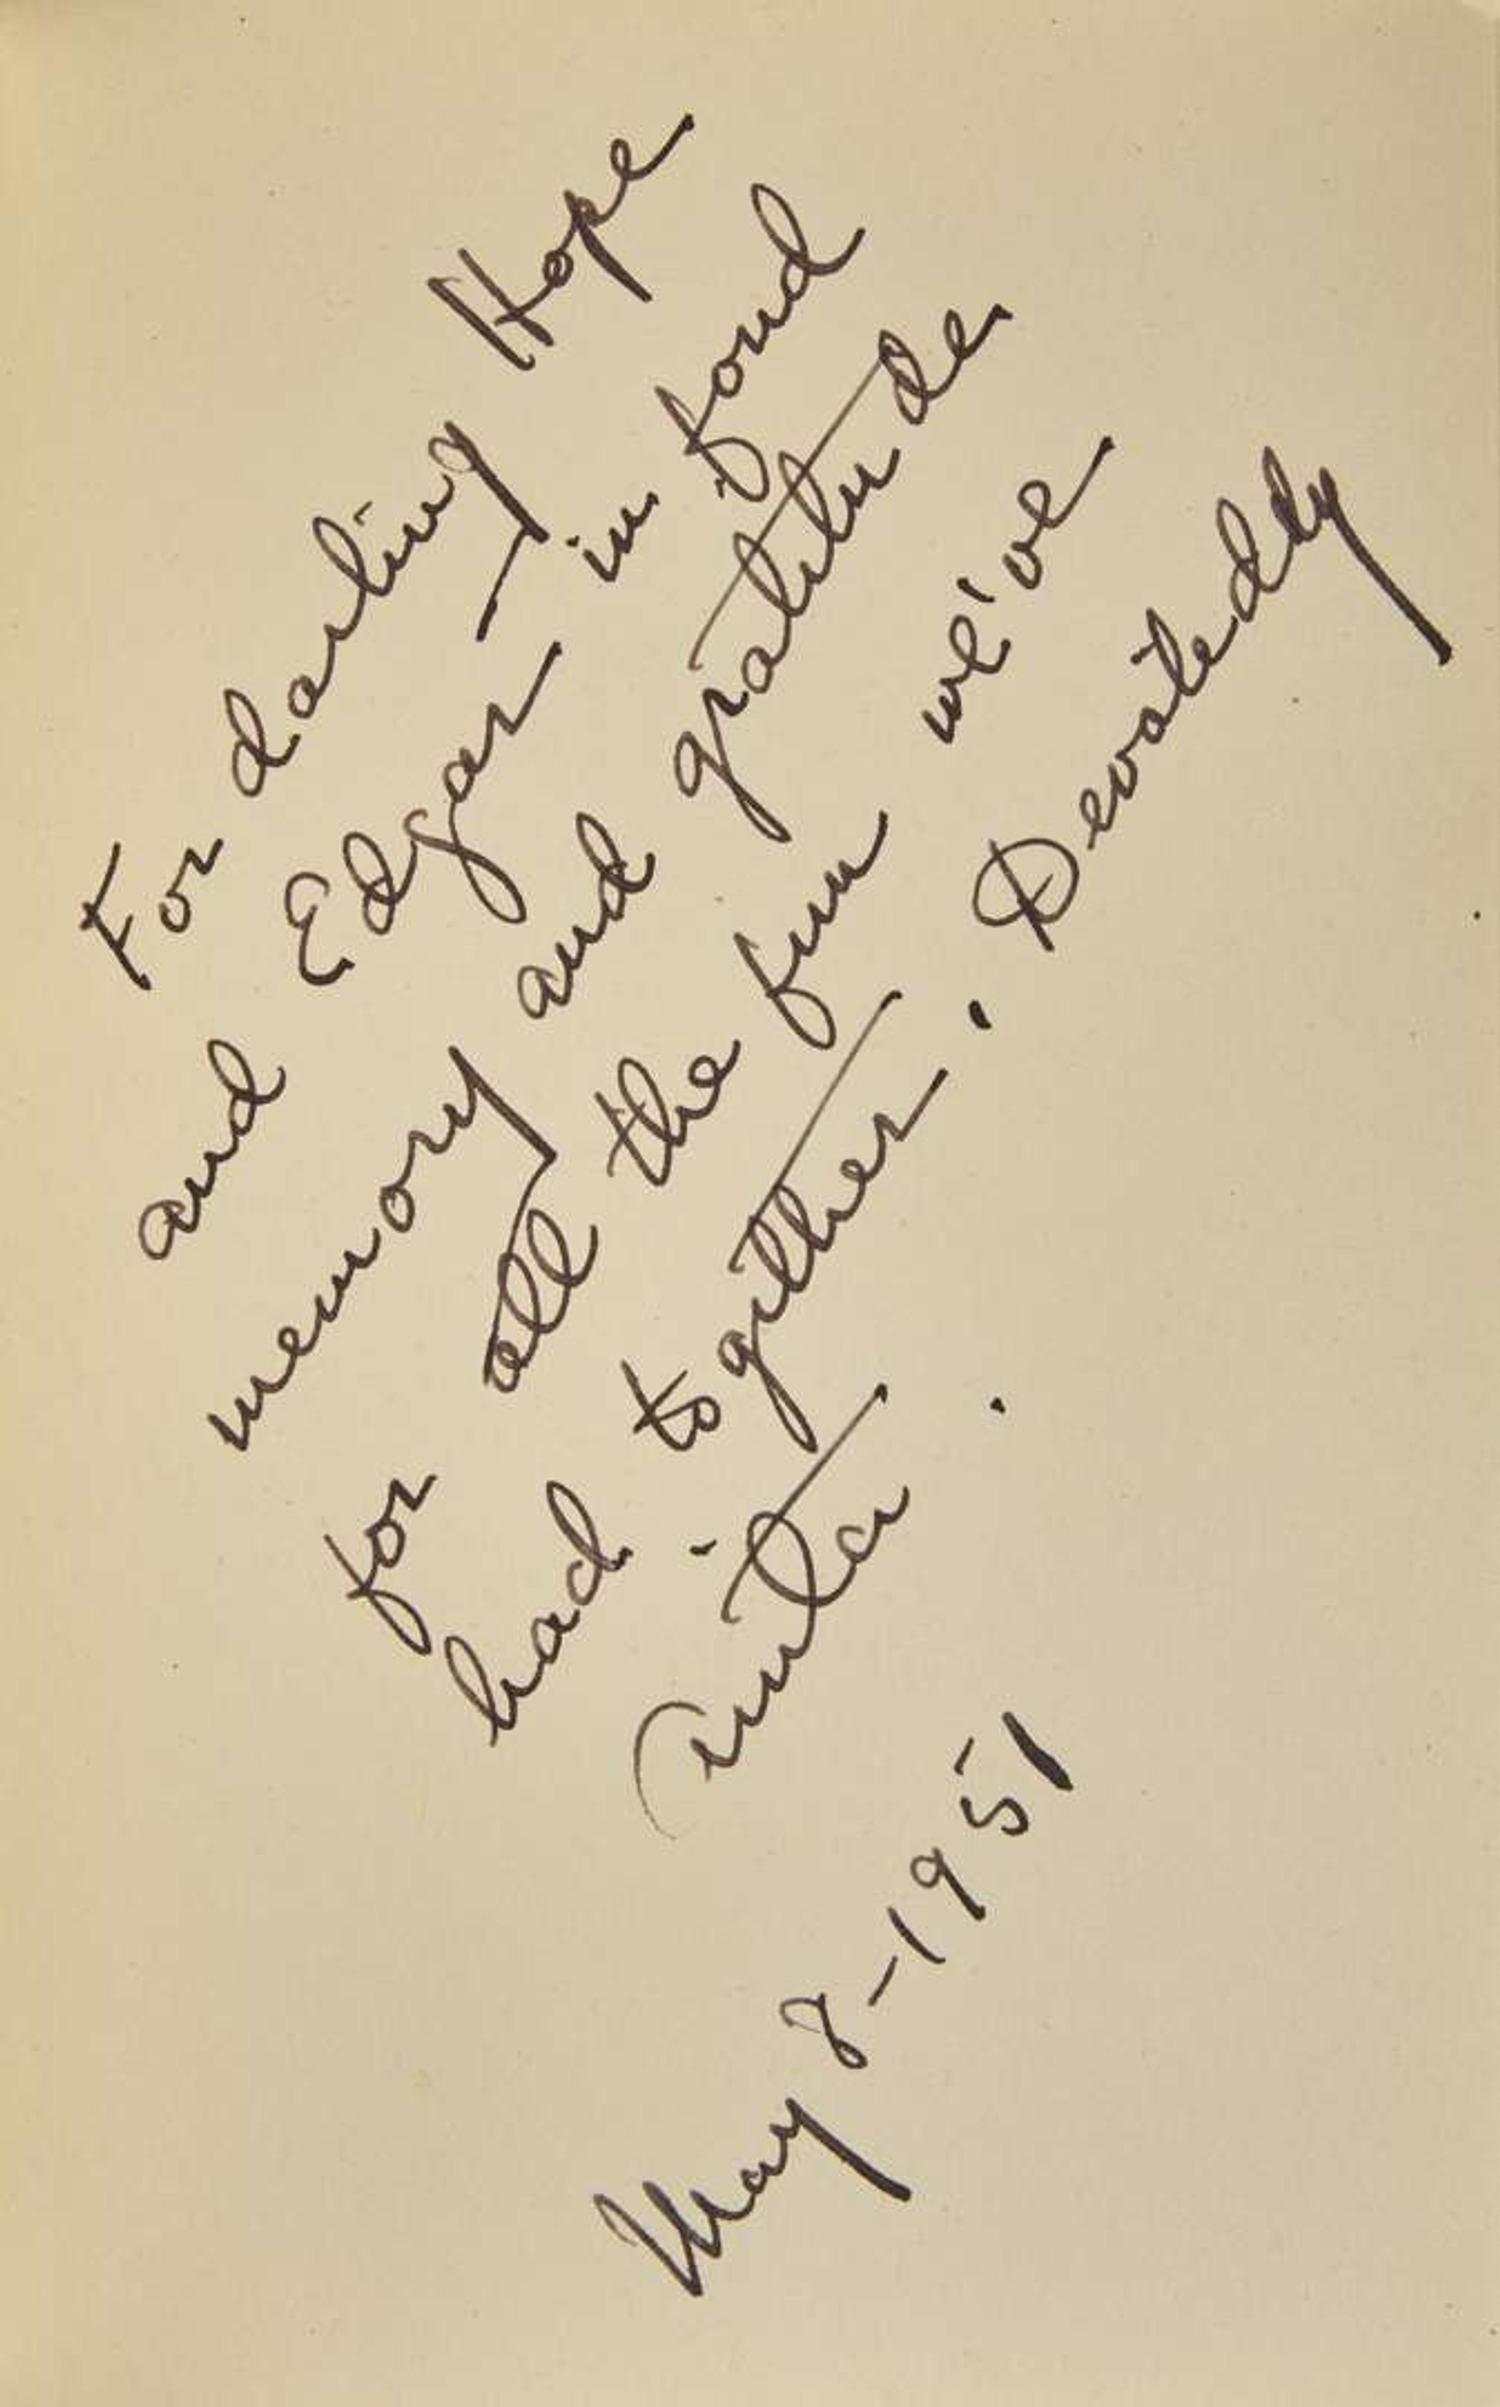 For darling Hope
and Edgar – in fond
memory and gratitude
for all the fun we've
had together. Devotedly
Anita.
May 8-1951